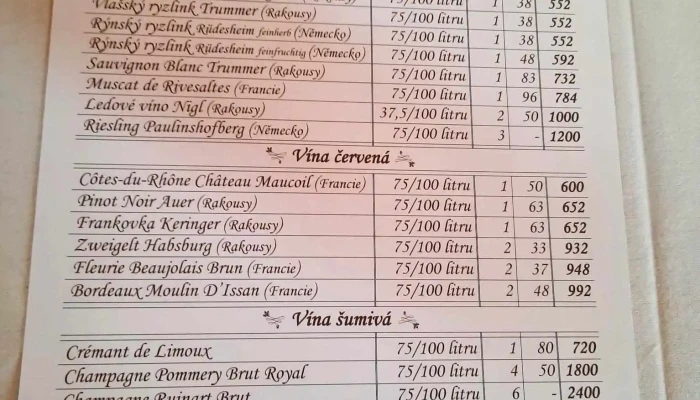 Vlašský ryzlink Trummer (Rakousy) 75/100 litru 1 38 552
Rýnský ryzlink Rüdesheim feinherb (Německo) 75/100 litru 1 38 552
Rýnský ryzlink Rüdesheim feinfruchtig (Německo) 75/100 litru 1 38 552
Sauvignon Blanc Trummer (Rakousy) 75/100 litru 1 48 592
Muscat de Rivesaltes (Francie) 75/100 litru 1 83 732
Ledové víno Nigl (Rakousy) 75/100 litru 1 96 784
Riesling Paulinshofberg (Německo) 37,5/100 litru 2 50 1000
75/100 litru 3 - 1200
Vína červená
Côtes-du-Rhône Château Maucoil (Francie) 75/100 litru 1 50 600
Pinot Noir Auer (Rakousy) 75/100 litru 1 63 652
Frankovka Keringer (Rakousy) 75/100 litru 1 63 652
Zweigelt Habsburg (Rakousy) 75/100 litru 2 33 932
Fleurie Beaujolais Brun (Francie) 75/100 litru 2 37 948
Bordeaux Moulin D'Issan (Francie) 75/100 litru 2 48 992
Vína šumivá
Crémant de Limoux 75/100 litru 1 80 720
Champagne Pommery Brut Royal 75/100 litru 4 50 1800
Champagne Ruinart Brut 75/100 litru 6 - 2400